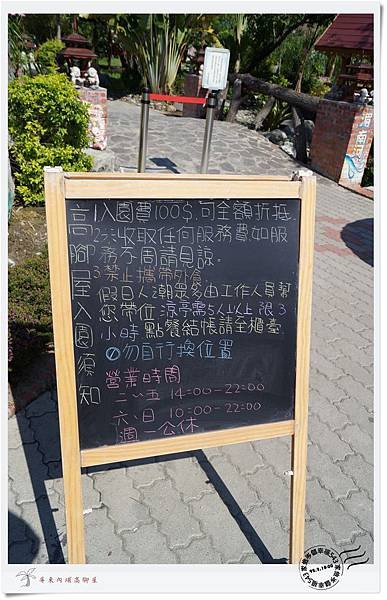 高腳屋入園須知
1入園費100$.可全額折抵
2.求收取任何服務費如服
務不周請見諒.
3禁止攜帶外食
假日人潮眾多由工作人員幫
您帶位 涼亭需5人以上 限3
小時 點餐結帳請至櫃臺
勿自行換位置
營業時間
二~五 14:00-22:00
六、日 10:00-22:00
週一公休
湄南河
屏東內埔高腳屋